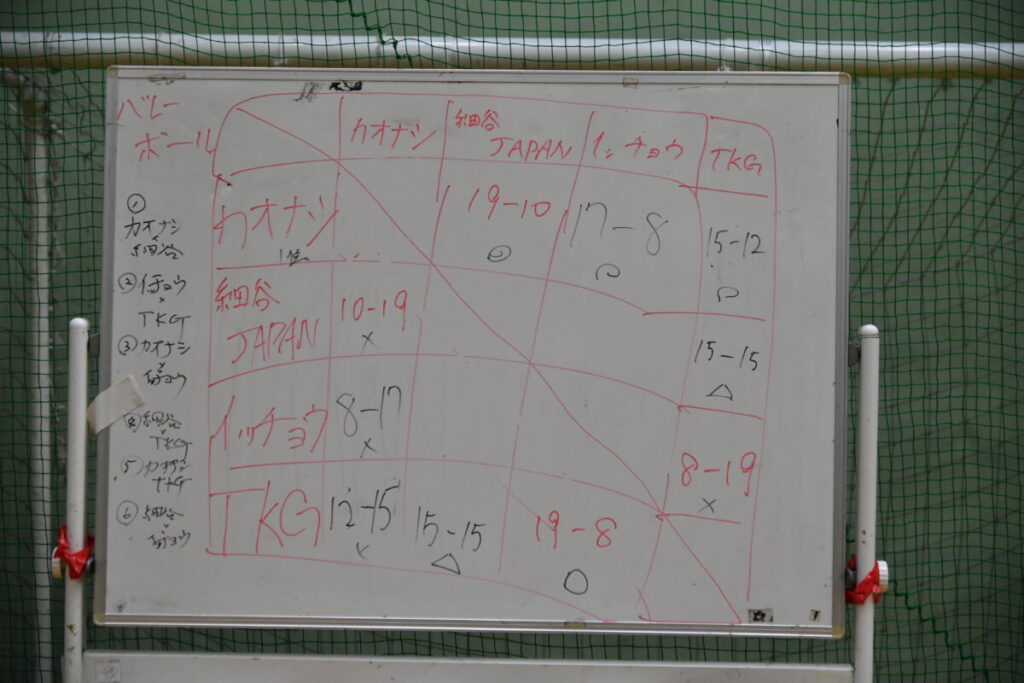 バレー
ボール
カオナシ
細谷
JAPAN
イッチョウ
TKG
①
カオナシ
細谷
②
イチョウ
×
TKG
③ カオナシ
④ 細谷
TKG
5) カオナシ
TKG
⑥ 細谷
カオナシ
1位
19-10
17-8
○
15-12
細谷
JAPAN
10-19
×
15-15
△
イッチョウ
8-17
×
8-19
×
TKG
12-15
×
15-15
△
19-8
○